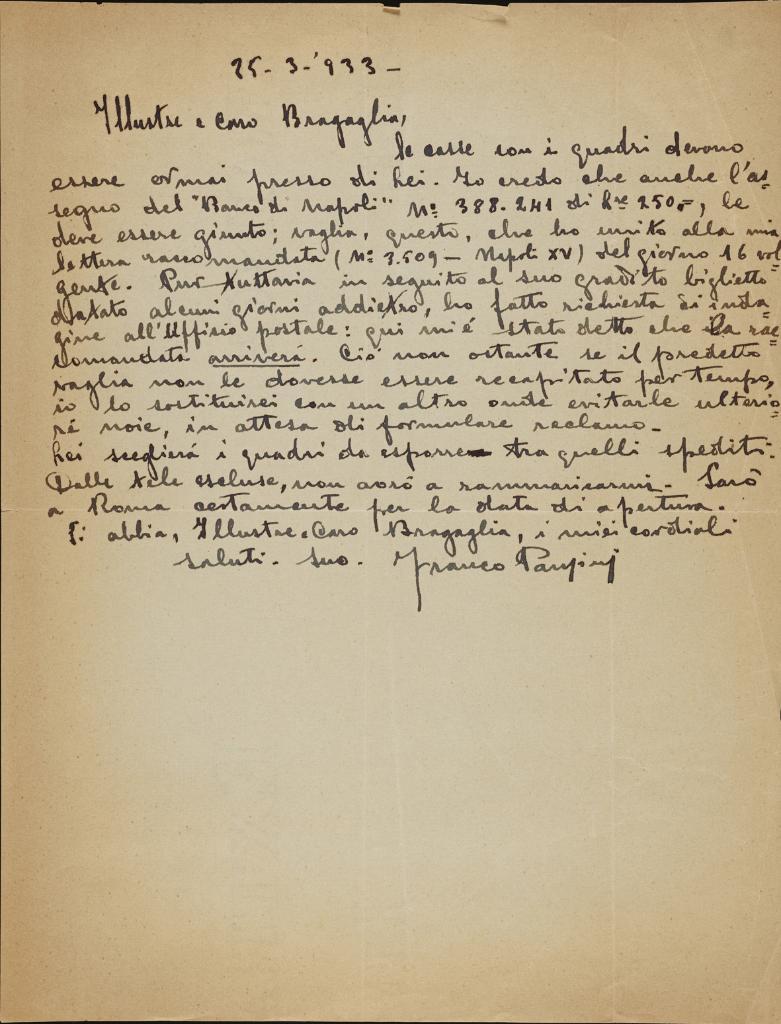 25-3-'933-
Illustre e caro Bragaglia,
le casse con i quadri devono
essere ormai presso di Lei. Io credo che anche l'as=
segno del "Banco di Napoli" Nº 388.241 di Lire 250,-, le
deve essere giunto; vaglia, questo, che ho unito alla mia
lettera raccomandata (Nº 3.509 - Napoli XV) del giorno 16 vol=
gente. Pur tuttavia in seguito al suo gradito biglietto
datato alcuni giorni addietro, ho fatto richiesta di inda=
gine all'Ufficio postale: qui mi é stato detto che la rac=
comandata arriverá. Ció non ostante se il predetto
vaglia non le dovesse essere recapitato per tempo,
io lo sostituirei con un altro onde evitarle ulterio=
ri noie, in attesa di formulare reclamo-
Lei sceglierá i quadri da esporre tra quelli spediti.
Dalle tele escluse, non avró a rammaricarmi. Saró
a Roma certamente per la data di apertura.
Si abbia, Illustre e Caro Bragaglia, i miei cordiali
saluti. Suo. Franco